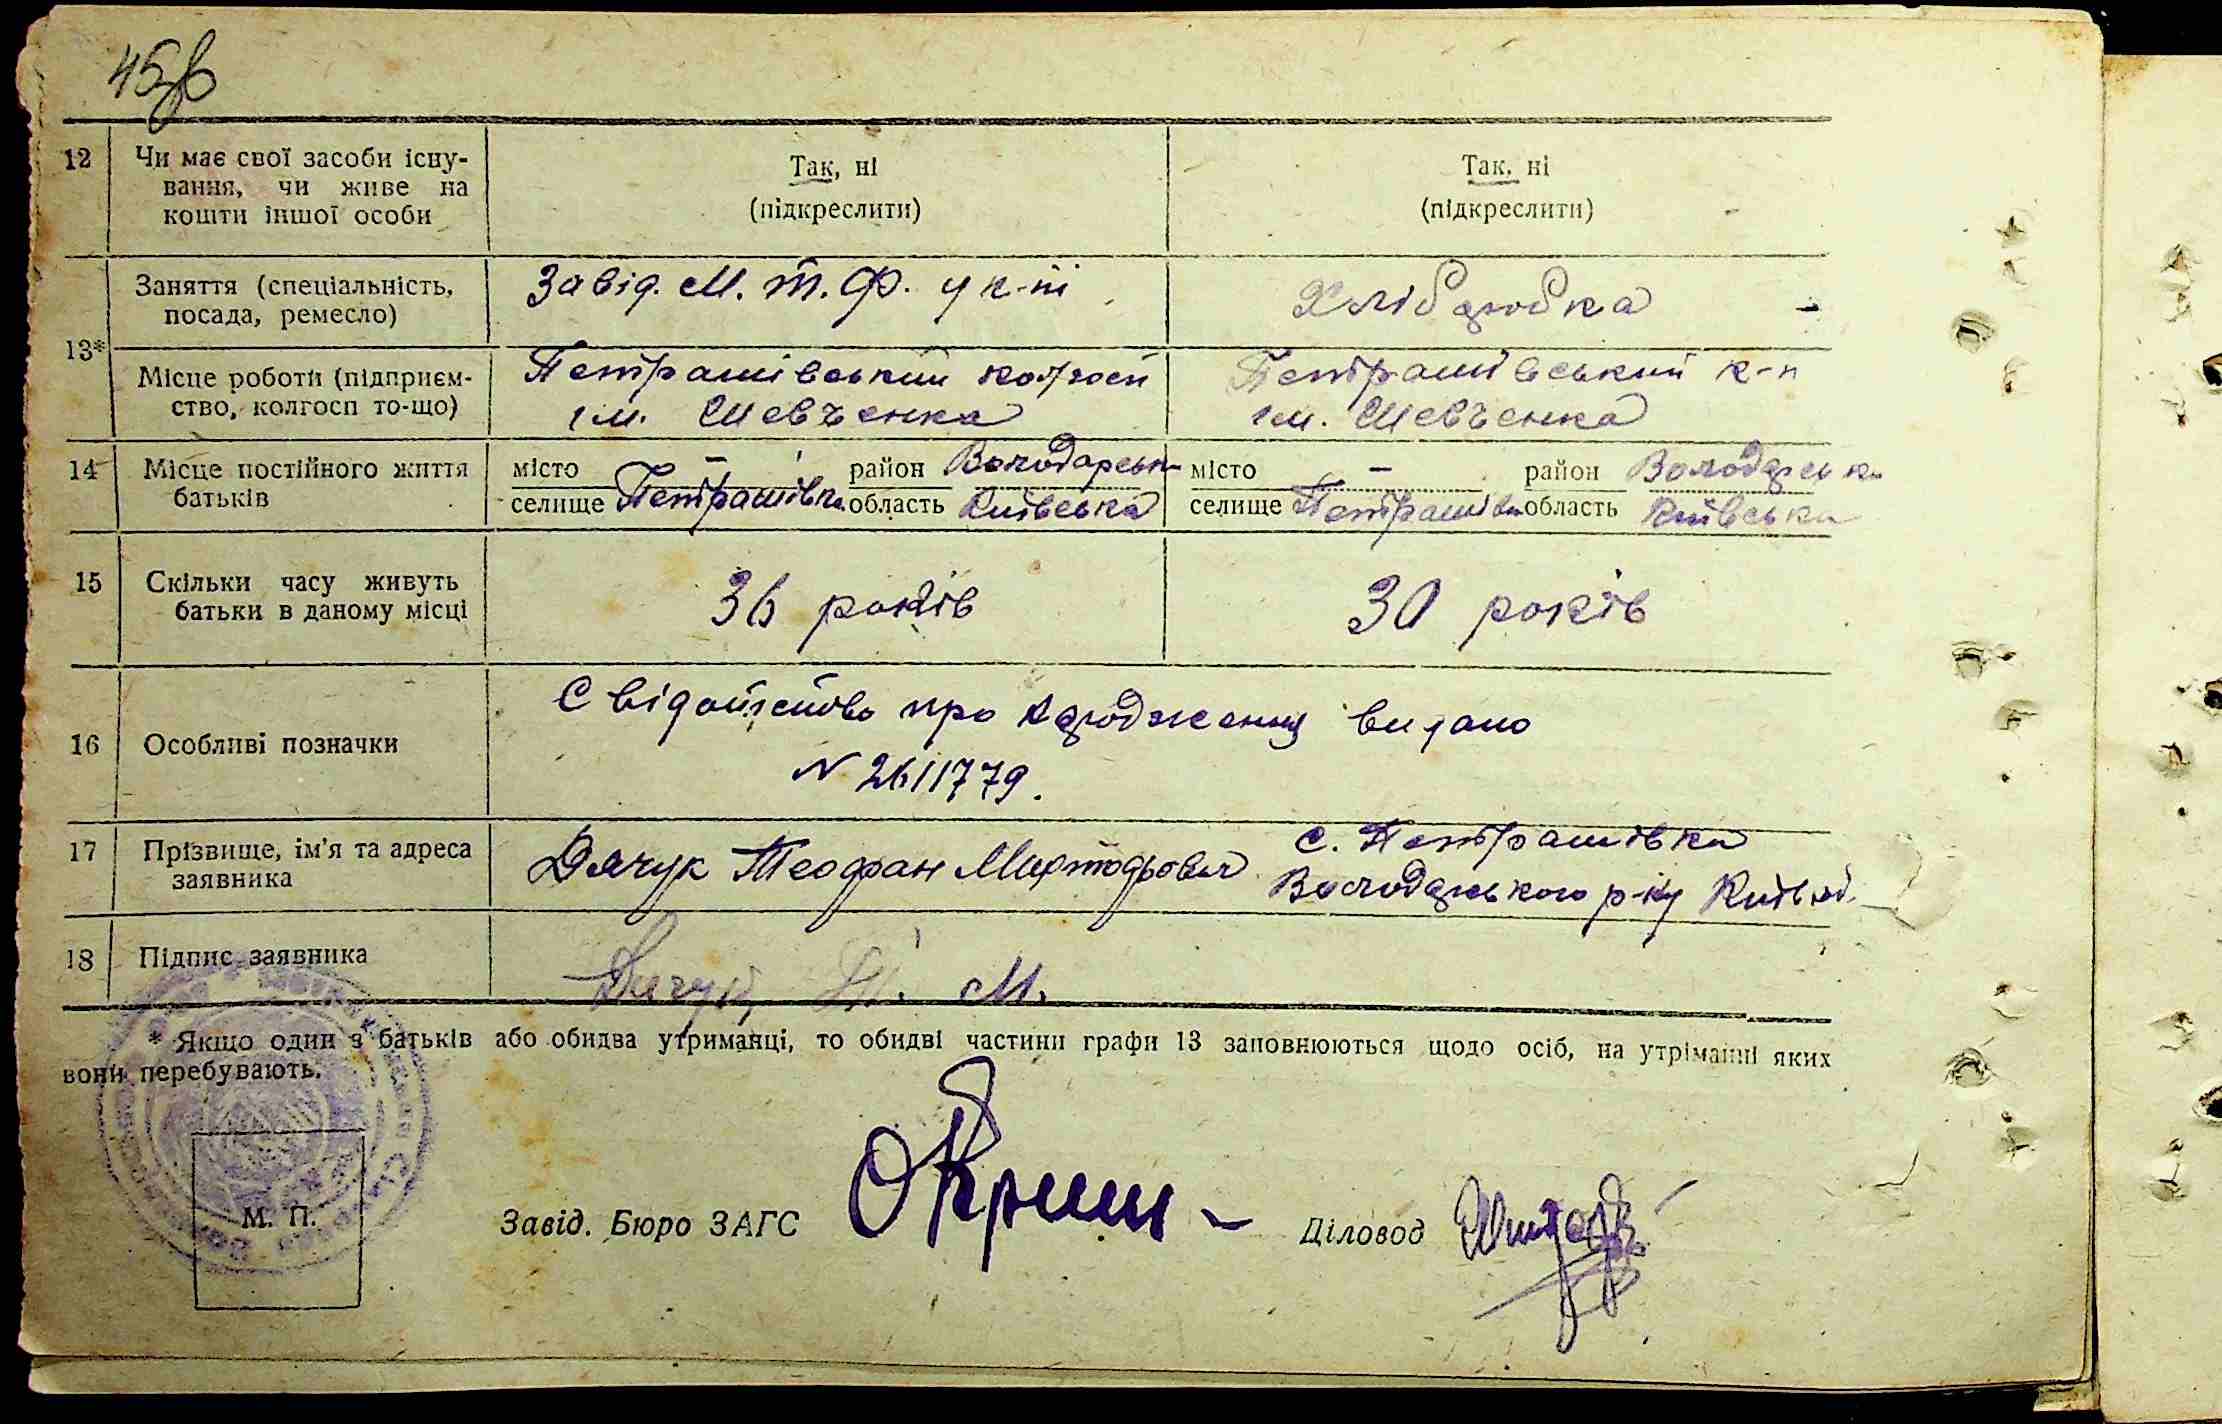 45
12 Чи має свої засоби існу- Так, ні Так, ні
вання, чи живе на (підкреслити) (підкреслити)
кошти іншої особи
13* Заняття (спеціальність, Завід. М. т. Ф. у к-пі Хліборобка
посада, ремесло)
Місце роботи (підприєм- Петрашівський колгосп Петрашівський к-п
ство, колгосп то-що) ім. Шевченка ім. Шевченка
14 Місце постійного життя місто — район Володарськ місто — район Володарськ
батьків селище Петрашівка область Київська селище Петрашівка область Київська
15 Скільки часу живуть 36 років 30 років
батьки в даному місці
16 Особливі позначки Свідотство про народження видано
N 2611779.
17 Прізвище, ім'я та адреса Дячук Теофан с. Петрашівка
заявника Володарського р-ну Київ об.
18 Підпис заявника Дячук Т. М.
* Якщо один з батьків або обидва утриманці, то обидві частини графи 13 заповнюються щодо осіб, на утріманні яких
вони перебувають.
М. П. Завід. Бюро ЗАГС Діловод